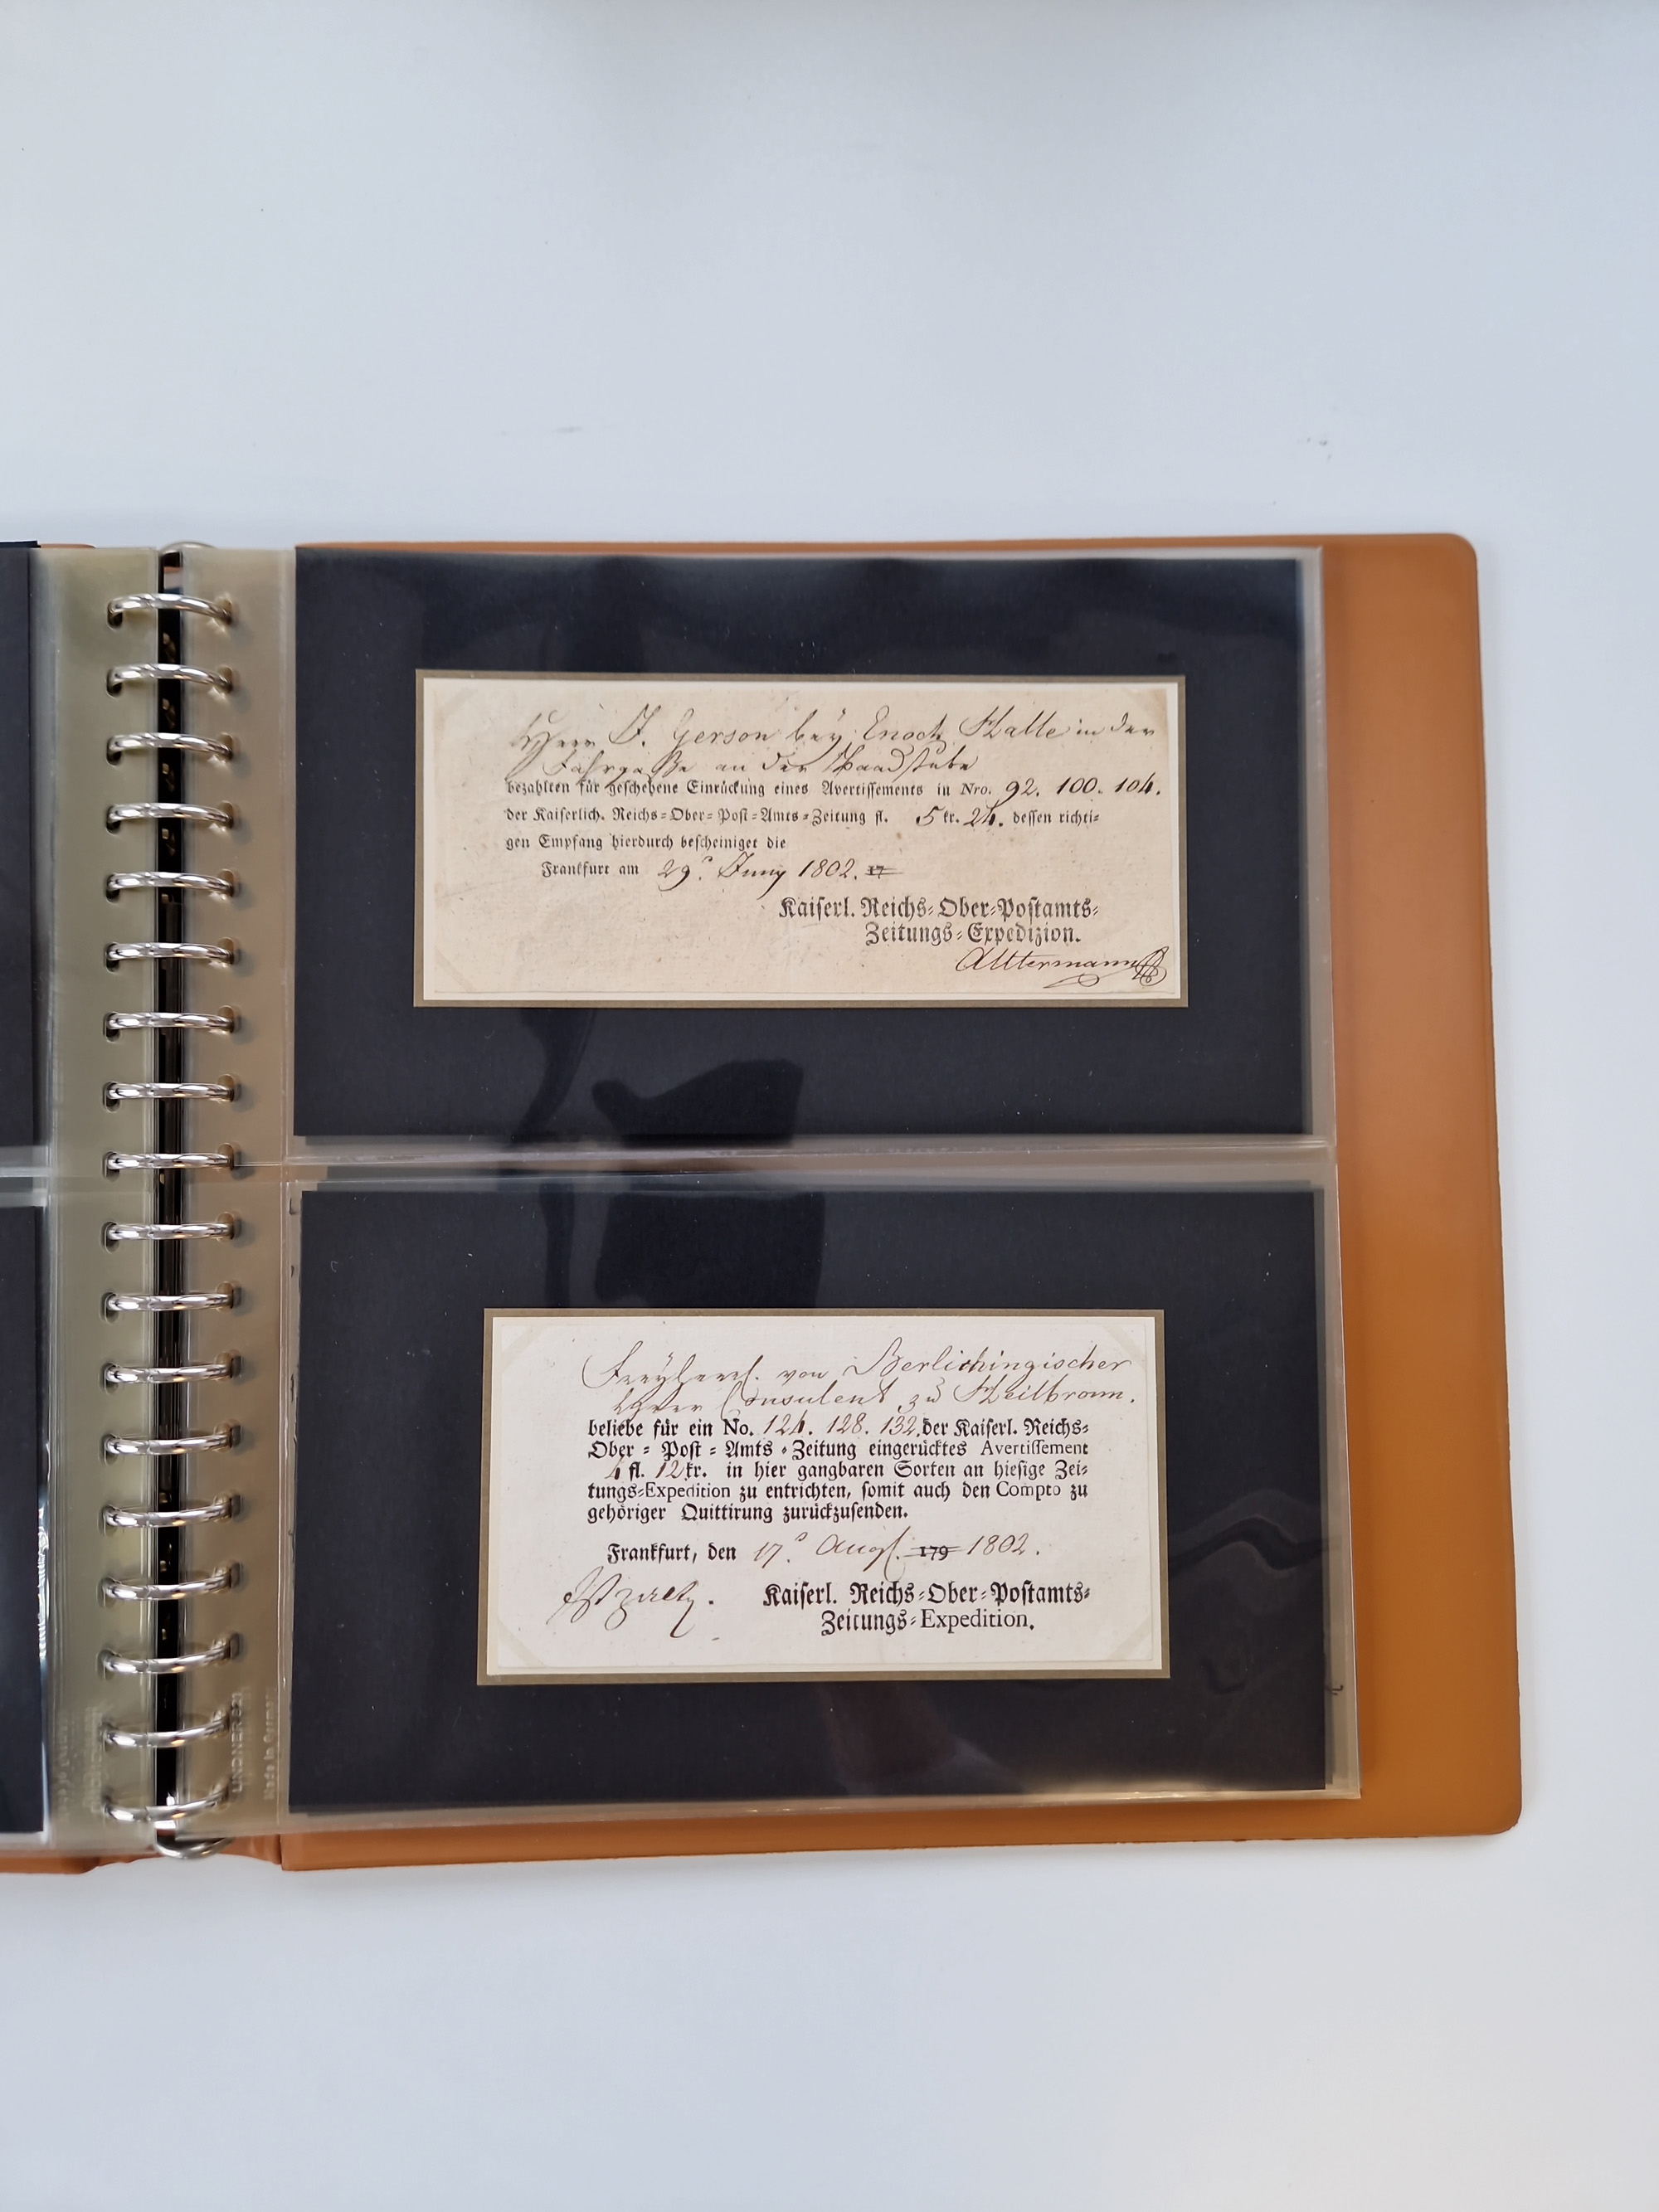 Herr J. Gerson bey Enoch Halle in der
Fahrgaße an der
bezahlten für geschehene Einrückung eines Avertissements in Nro. 92. 100. 104.
der Kaiserlich. Reichs-Ober-Post-Amts-Zeitung fl. 5 kr. 24. dessen richti-
gen Empfang hierdurch bescheiniget die
Frankfurt am 29. Juny 1802. 17
Kaiserl. Reichs-Ober-Postamts-
Zeitungs-Expedizion.
Freyherrl. von Berlichingischer
Herr Consulent zu Heilbronn.
beliebe für ein No. 124. 128. 132. der Kaiserl. Reichs-
Ober-Post-Amts-Zeitung eingerücktes Avertissement
4 fl. 12 kr. in hier gangbaren Sorten an hiesige Zei-
tungs-Expedition zu entrichten, somit auch den Compto zu
gehöriger Quittirung zurückzusenden.
Frankfurt, den 17. Augst. 179 1802.
Kaiserl. Reichs-Ober-Postamts-
Zeitungs-Expedition.
LINDNER